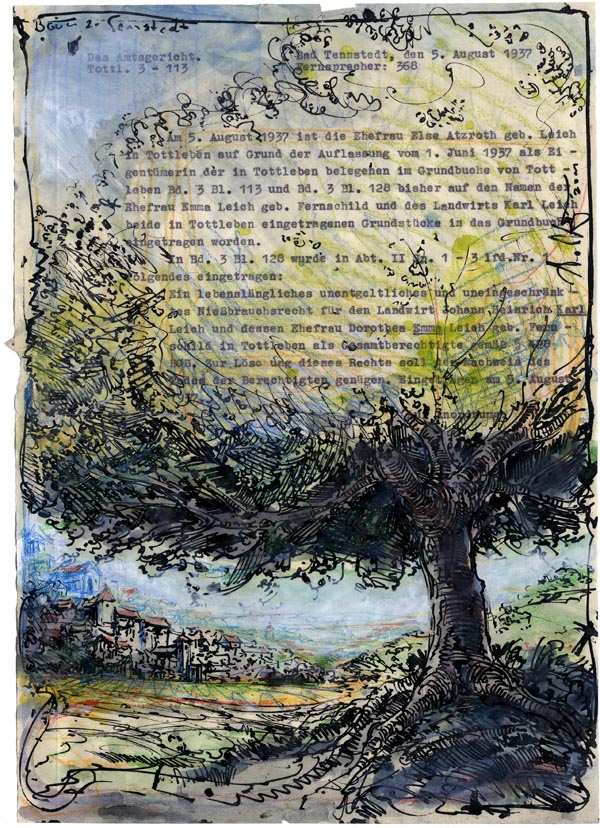 Das Amtsgericht.
Tottl. 3 - 113
Bad Tennstedt, den 5. August 1937
Fernsprecher: 368
Am 5. August 1937 ist die Ehefrau Else Atzroth geb. Leich
in Tottleben auf Grund der Auflassung vom 1. Juni 1937 als Ei-
gentümerin der in Tottleben belegenen im Grundbuche von Tott
leben Bd. 3 Bl. 113 und Bd. 3 Bl. 128 bisher auf den Namen der
Ehefrau Emma Leich geb. Fernschild und des Landwirts Karl Leich
beide in Tottleben eingetragenen Grundstücke in das Grundbuch
eingetragen worden.
In Bd. 3 Bl. 128 wurde in Abt. II 1 - 3 lfd.Nr. 1
folgendes eingetragen:
Ein lebenslängliches unentgeltliches und uneingeschränk-
tes Nießbrauchsrecht für den Landwirt Johann Heinrich Karl
Leich und dessen Ehefrau Dorothea Emma Leich geb. Fern
schild in Tottleben als Gesamtberechtigte gemäß § 428
BGB. Zur Lösc ung dieses Rechts soll der Nachweis des
Todes der Berechtigten genügen. Eingetragen am 5. August